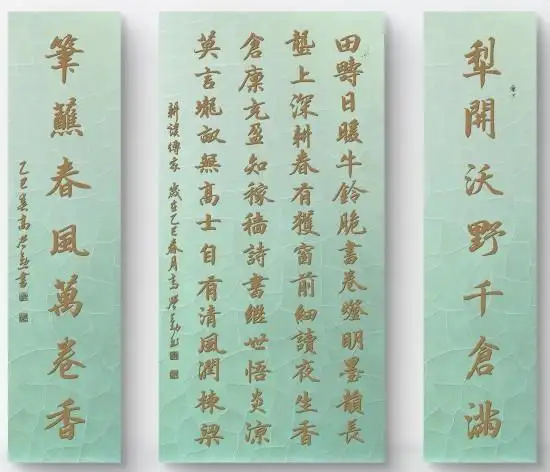 犁開沃野千倉滿
田疇日暖牛鈴脆書卷燈明墨韻長
壟上深耕春有穫窗前細讀夜生香
倉廩充盈知稼穡詩書繼世悟炎涼
莫言壠畝無高士自有清風潤棟梁
耕讀傳家 歲在乙巳春月高
筆蘸春風萬卷香
乙巳 高 書